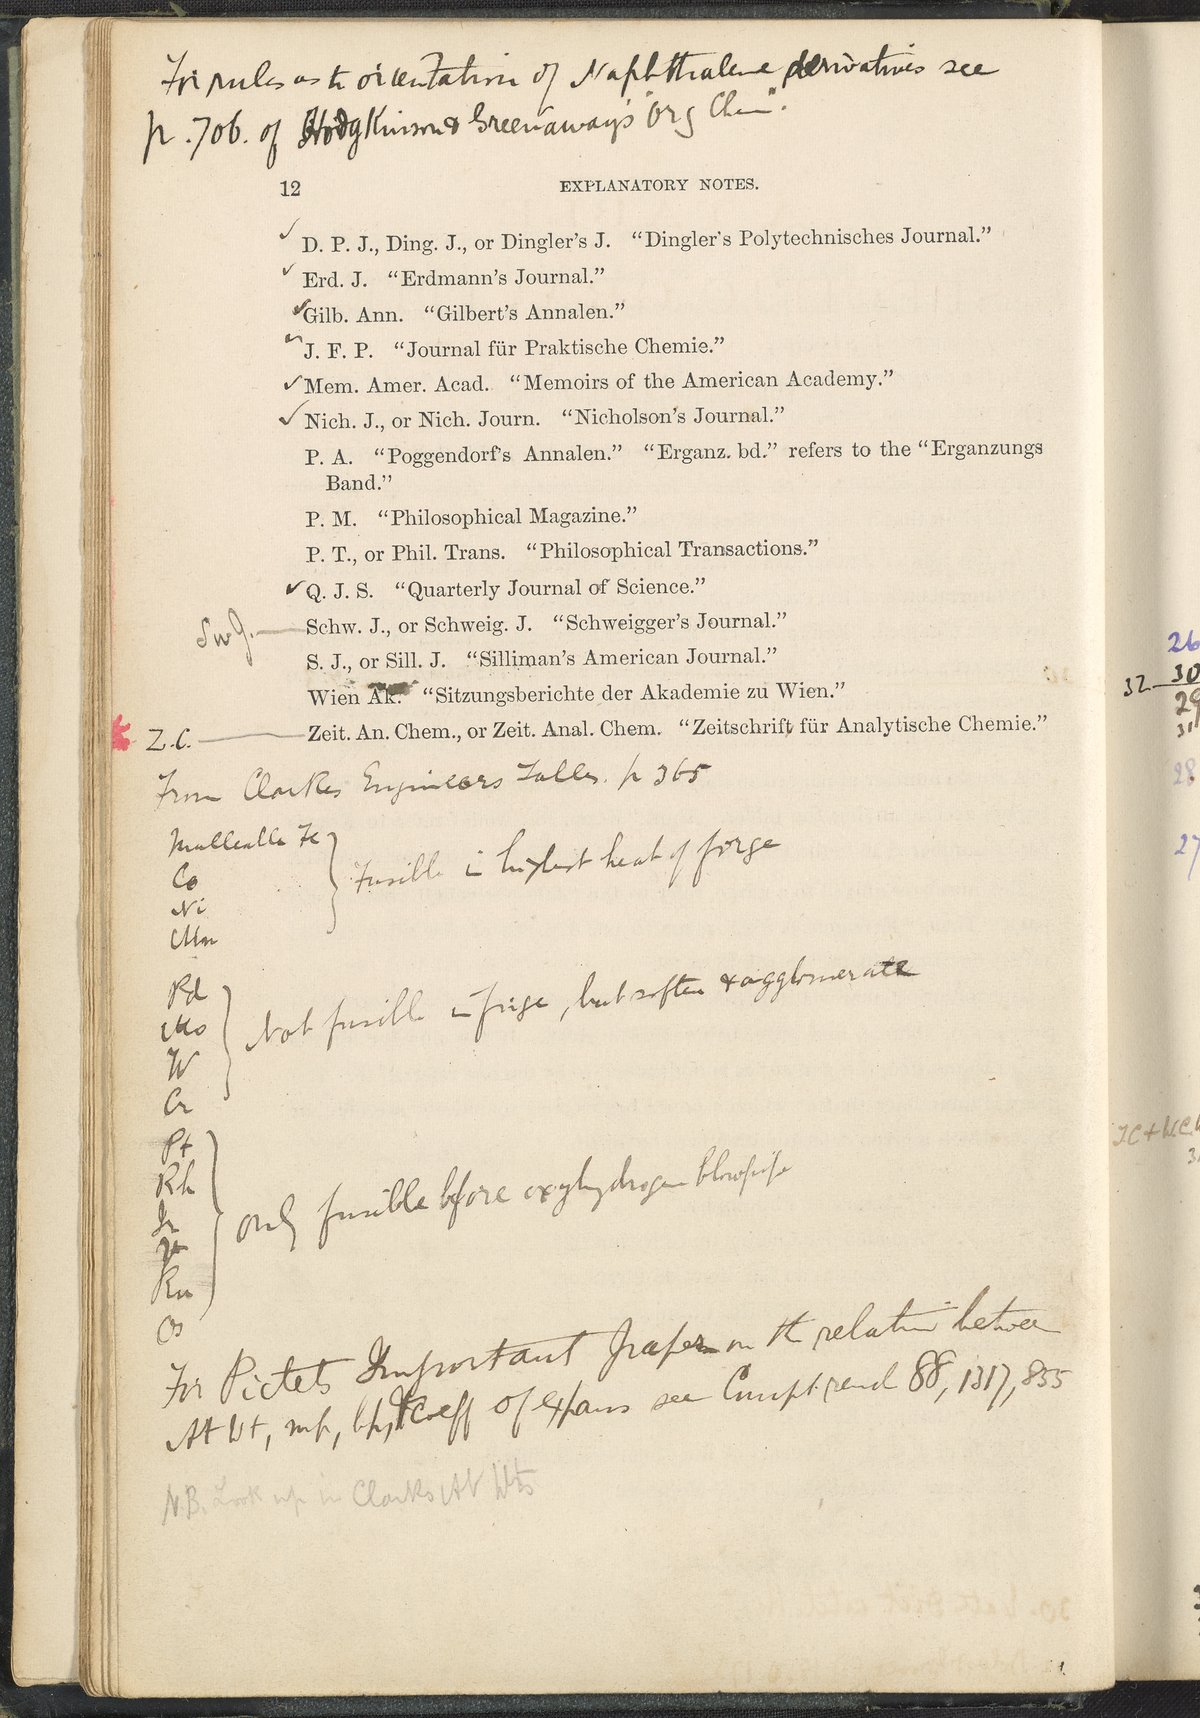 For rules as to orientation of Naphthalene derivatives see
p. 706. of Hodgkinson & Greenaway's "Org Chem".
12 EXPLANATORY NOTES.
✓ D. P. J., Ding. J., or Dingler's J. “Dingler's Polytechnisches Journal.”
✓ Erd. J. “Erdmann's Journal.”
✓ Gilb. Ann. “Gilbert's Annalen.”
J. F. P. “Journal für Praktische Chemie.”
✓ Mem. Amer. Acad. “Memoirs of the American Academy.”
✓ Nich. J., or Nich. Journ. “Nicholson's Journal.”
P. A. “Poggendorf's Annalen.” “Erganz. bd.” refers to the “Erganzungs
Band.”
P. M. “Philosophical Magazine.”
P. T., or Phil. Trans. “Philosophical Transactions.”
✓ Q. J. S. “Quarterly Journal of Science.”
Sw J. — Schw. J., or Schweig. J. “Schweigger's Journal.”
S. J., or Sill. J. “Silliman's American Journal.”
Wien Ak. “Sitzungsberichte der Akademie zu Wien.”
Z.C. — Zeit. An. Chem., or Zeit. Anal. Chem. “Zeitschrift für Analytische Chemie.”
From Clarkes Engineers Tables. p 365
Malleable Fe
Co
Ni
Mn
Fusible in highest heat of forge
Pd
Mo
W
Cr
Not fusible in forge, but soften & agglomerate
Pt
Rh
Ir
Ru
Os
only fusible before oxyhydrogen blowpipe
For Pictets Important paper on the relation between
At Wt, mp, bp, & Coeff of expans see Compt. rend 88, 1317, 855
N.B. Look up in Clarks At Wts
26
32 30
29
31
28
27